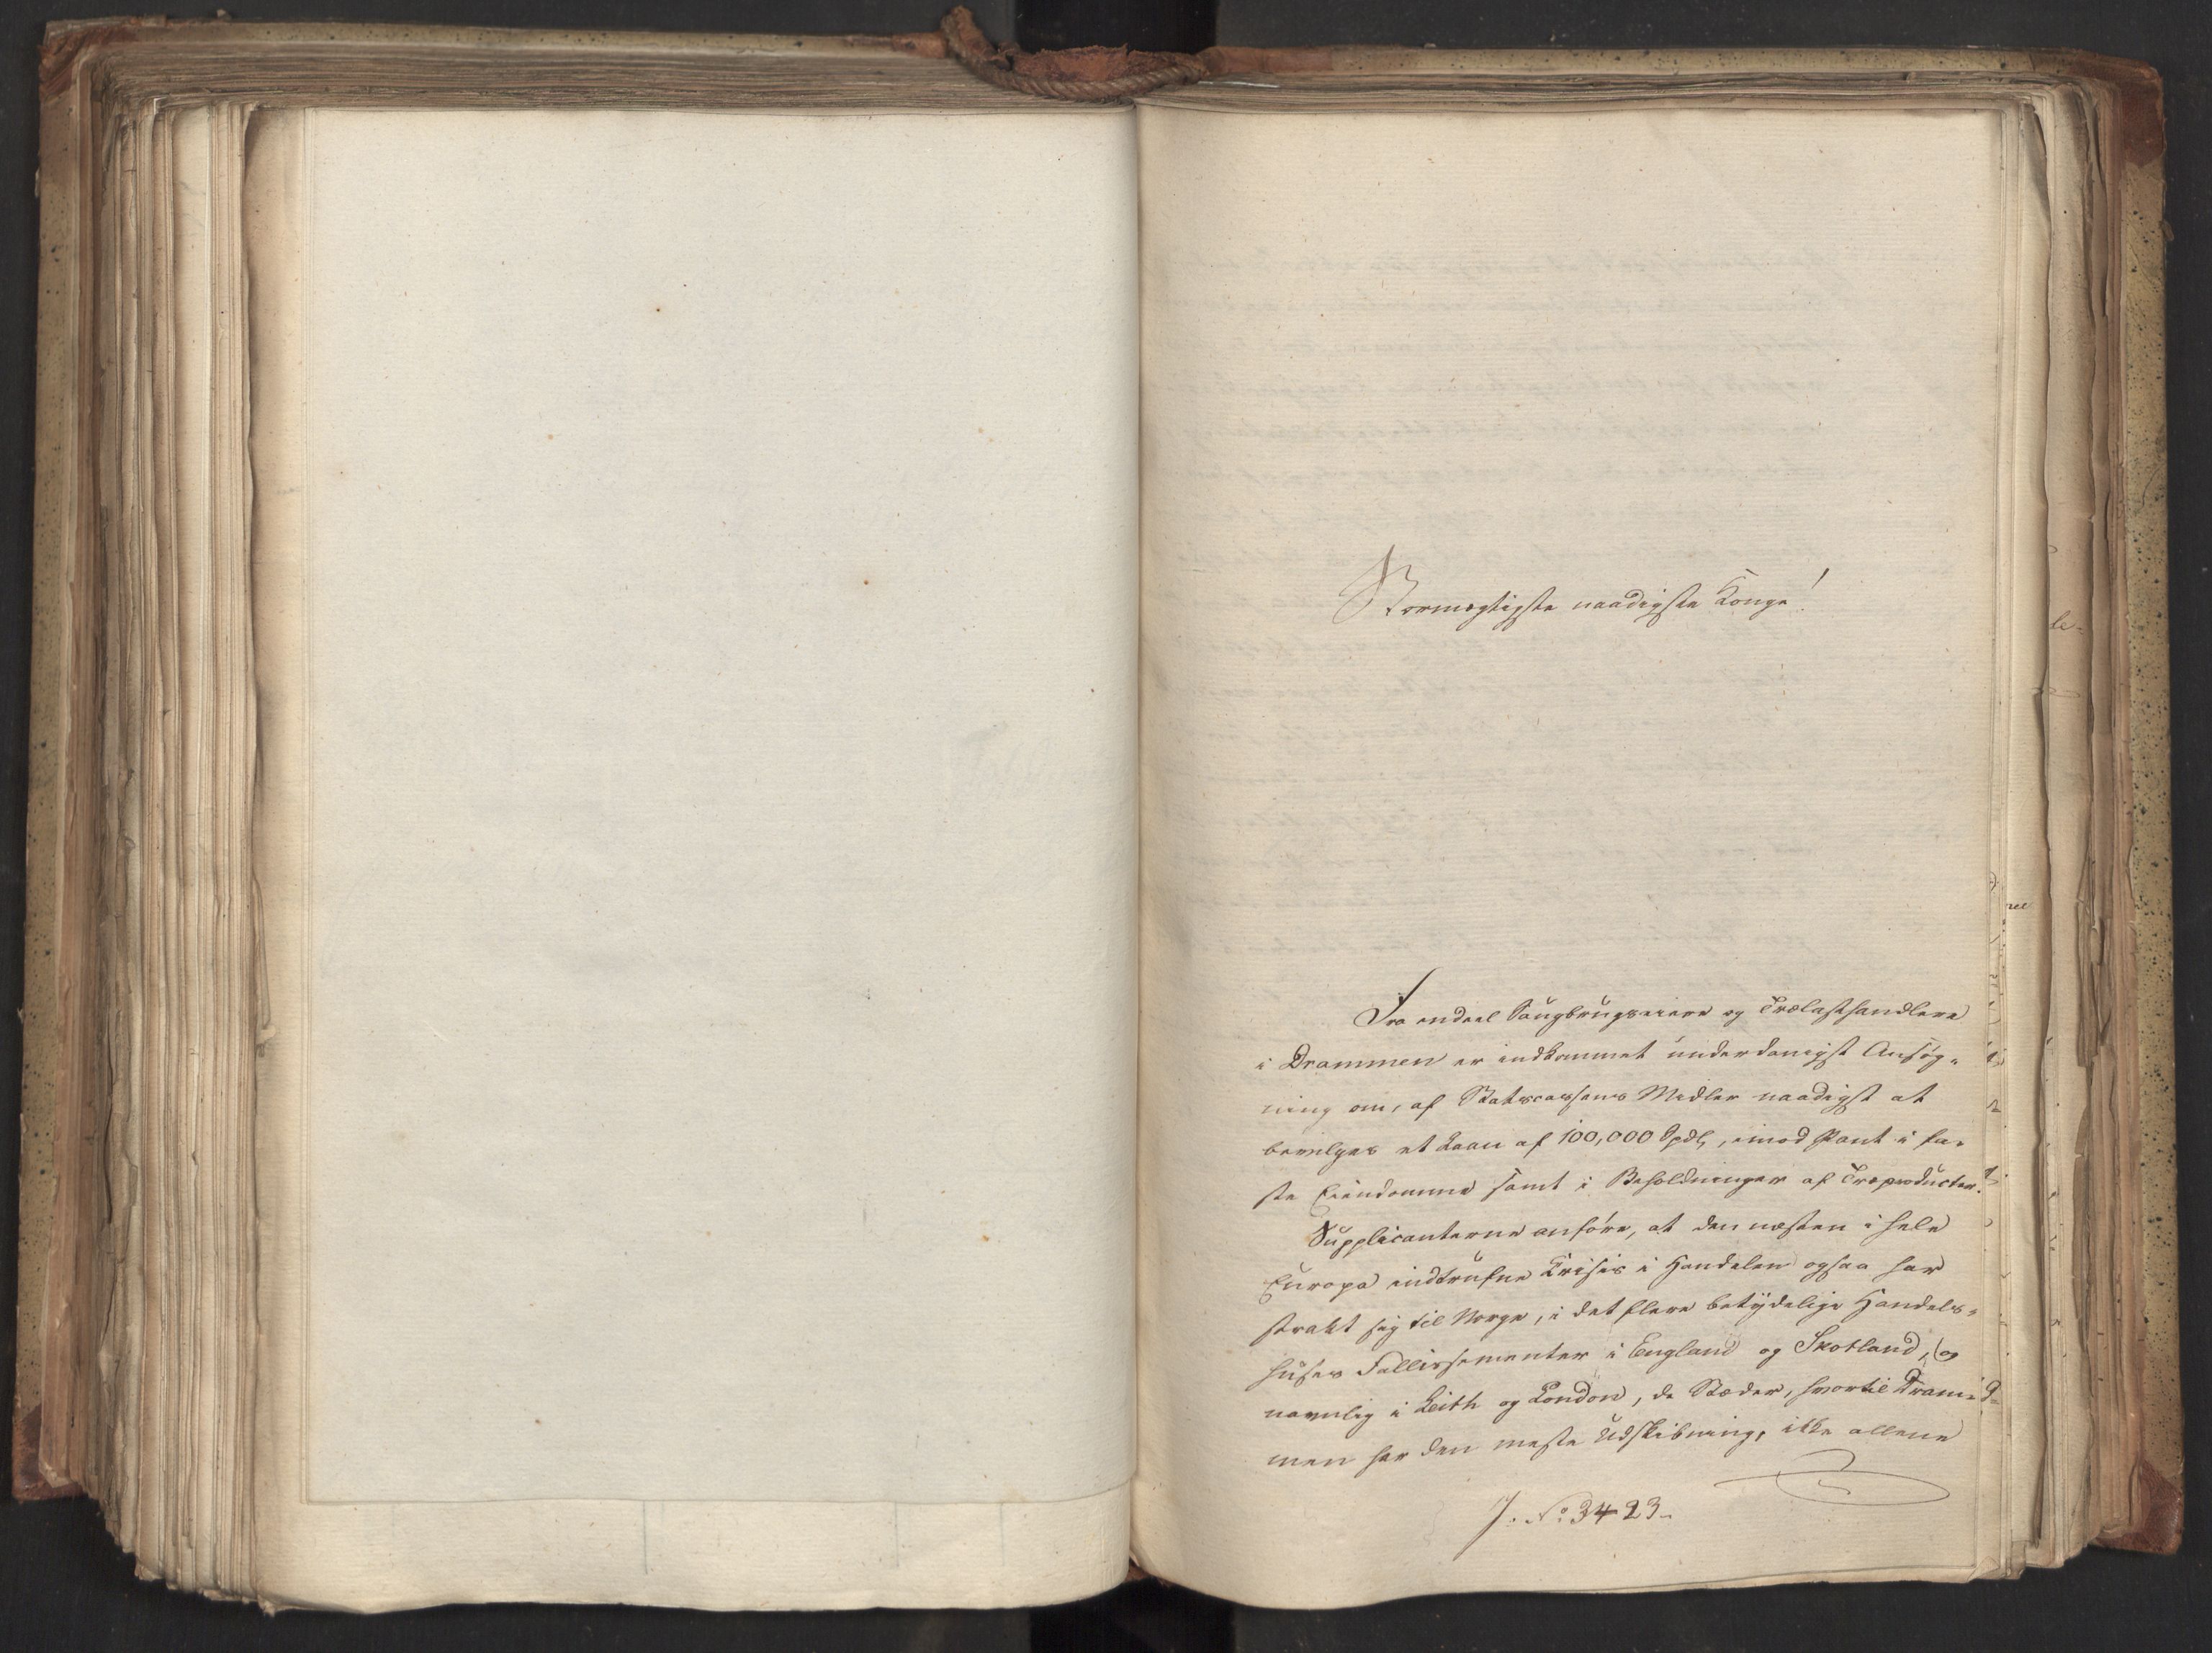 Stormægtigste naadigste Konge!
Fra endeel Saugbrugseiere og Trælasthandlere
i Drammen er indkommet underdanigst Ansøg-
ning om, af Statscassens Midler naadigst at
bevilges et Laan af 100,000 Spdlr, imod Pant i fa-
ste Eiendomme samt i Beholdninger af Træproducter.
Supplicanterne anføre, at den næsten i hele
Europa indtrufne Krisis i Handelen ogsaa har
strakt sig til Norge, i det flere betydelige Handels-
huses Fallissementer i England og Skotland, og
navnlig i Leith og London, de Stæder, hvortil Dram-
men har den meste Udskibning, ikke allene
J. No 3423.